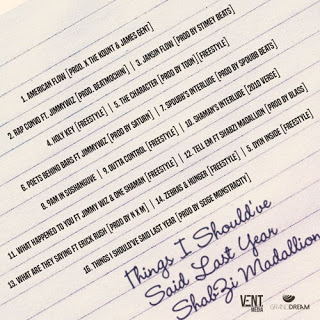 1. AMERICAN FLOW [PROD. X THE KOUNT & JAMES GENT]
2. RAP CONVO FT. JIMMYWIZ [PROD. BEATMOCHINI] || 3. JANSIN FLOW [PROD BY STIMEY BEATS]
4. HOLY KEY [FREESTYLE] || 5. THE CHARACTER [PROD BY TOON] [FREESTYLE]
6. POETS BEHIND BARS FT JIMMYWIZ [PROD BY SATURN] || 7.SPOUBB'S INTERLUDE [PROD BY SPOUBB BEATS]
8. 9AM IN SOSHANGUVE || 9.OUTTA CONTROL [FREESTYLE] || 10. SHAMAN'S INTERLUDE [2010 VERSE]
11. WHAT HAPPENED TO YOU FT JIMMY WIZ & ONE SHAMAN [FREESTYLE] || 12. TELL EM FT SHABZI MADALLION [PROD BY GLASS]
13. WHAT ARE THEY SAYING FT ERICK RUSH [PROD BY N K M] || 14. ZEBRAS & HUNGER [FREESTYLE] || 5. DYIN INSIDE [FREESTYLE]
16. THINGS I SHOULD'VE SAID LAST YEAR [PROD BY SEIGE MONSTRACITY]
Things I Should've
Said Last Year
ShabZi Madallion
VENT MEDIA
GRANDDREAM